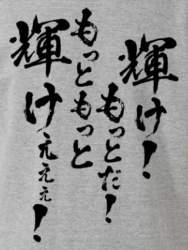 輝け！
もっとだ！
もっともっと
輝けぇぇぇ！